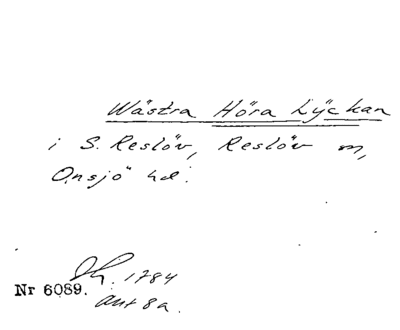 Wästra Höra Lÿckan
i S. Reslöv, Reslöv sn,
Onsjö hd.
Nr 6089. 1784
akt 8a.